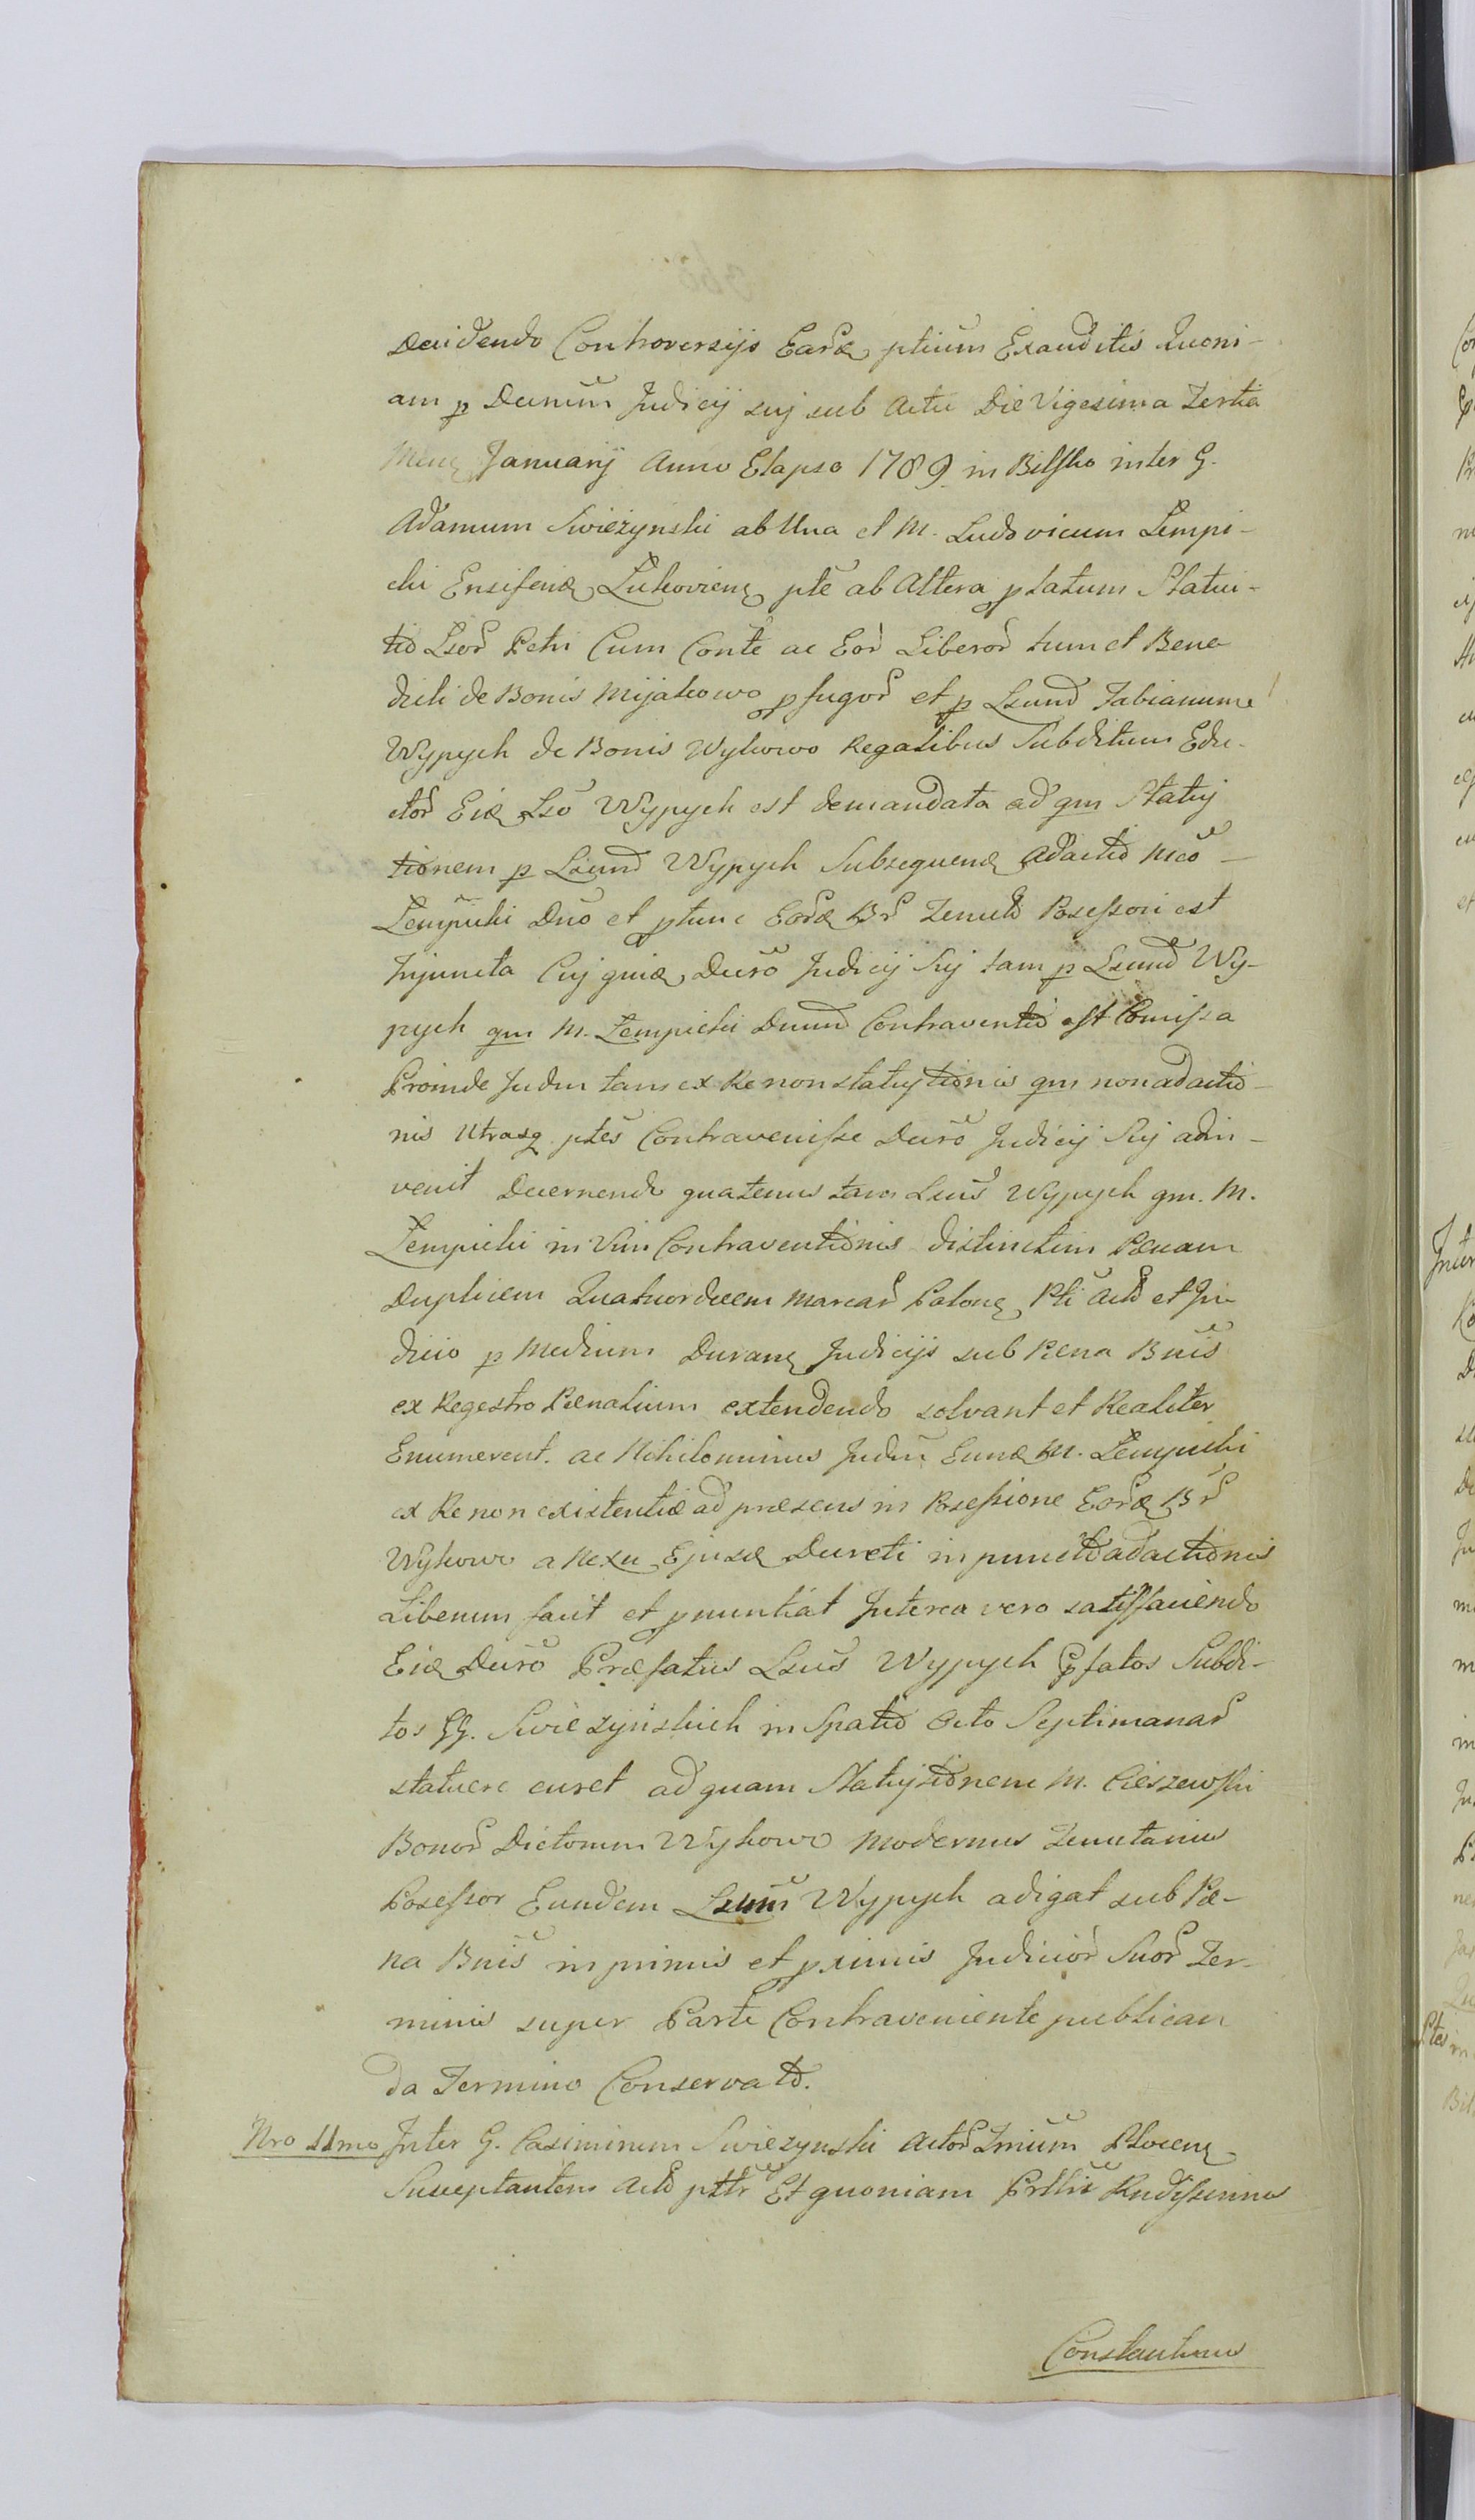 Decidendo Controversijs Eard ptium Exauditis Quoni-
am p Decrum Judicij suj sub Actu Die Vigesima Tertia
Mens Januarij Anno Elapso 1789 in Bilsko inter G.
Adamum Swieżynski ab Una et M. Ludovicum Lempi-
cki Ensiferid Lukoviens pte ab Altera platum Statui-
tio Lsor Petri Cum Conte ac Eor Liberor tum et Bene
dicti de Bonis Mijakowo pfugor et p Lsund Fabianum
Wypych de Bonis Wykowo Regalibus Subditum Edu-
ctor Eid Lso Wypych est demandata ad qm Statuj
tionem p Lsund Wypych Subsequend Adactio Mco
Lempicki Dno et ptunc Eord Br Tenuto Posessori est
Injuncta Cuj quid Decro Judicij Suj tam p Lsund Wy-
pych qm M. Lempicki Dnund Contraventio est Comissa
Proinde Judm tam ex Re non statujtionis qm non adactio-
nis Utrasq ptes Contravenisse Decro Judicij Suj adin-
venit Decernendo quatenus tam Lsus Wypych qm. M.
Lempicki in Vim Contraventionis distinctim Pænam
Duplicem Quatuordecem Marcar Polons Pti Acto et Ju-
dicio p Medium Durans Judicijs sub Pæna Bnis
ex Regestro Pænalium extendendo solvant et Realiter
Enumerent. ac Nihilominus Judm Eund M. Lempicki
ex Re non existentiæ ad præsens in Posessione Eord Br
Wykowo a Nexu Ejusd Decreti in puncto adactionis
Liberum facit et pnuntiat Interea vero satisfaciendo
Eid Decro Præfatus Lsus Wypych pfatos Subdi-
tos GG. Swieżyńskich in Spatio Octo Septimanar
statuere curet ad quam Statujtionem M. Cieszewski
Bonor Dictorum Wykowo Modernus Tenutarius
Posessor Eundem Lsum Wypych adigat sub Pæ-
na Bnis in primis et pximis Judicior Suor Ter-
minis super Parte Contraveniente publican
da Termino Conservato.
Nro 11mo Inter G. Casimirum Swieżynski Actor Tmium Plocens
Suceptantem Acto pttr Et quoniam Prttus Rndissimus
Constantinus